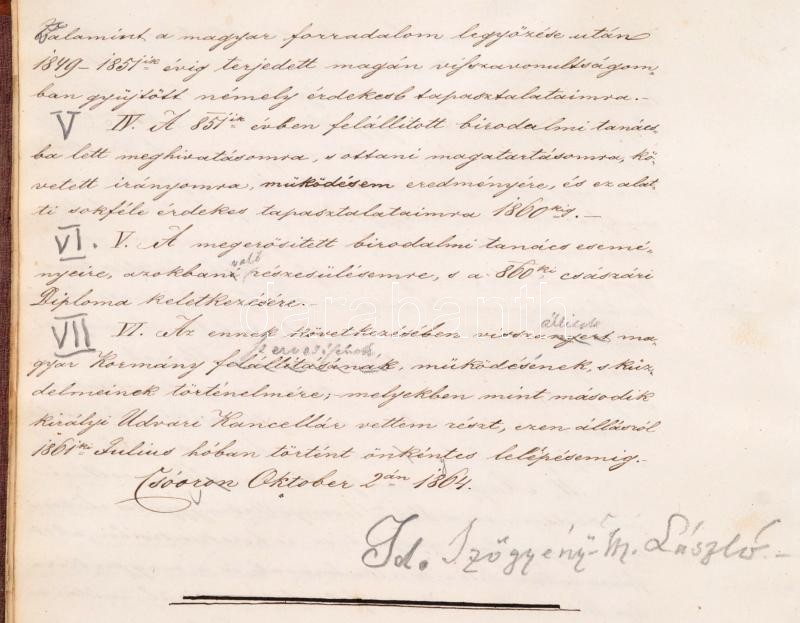 Valamint a magyar forradalom legyőzése után
1849–1851ik évig terjedett magán visszavonultságom-
ban gyüjtött némely érdekesb tapasztalataimra.–
V IV. A 851ik évben felállitott birodalmi tanács-
ba lett meghivatásomra, s ottani magatartásomra, kö-
vetett irányomra, müködésem eredményére, és ez alat-
ti sokféle érdekes tapasztalataimra 1860kig.–
VI. V. A megerősitett birodalmi tanács esemé-
nyeire, azokbani való részesülésemre, s a 860ki császári
Diploma keletkezésére.–
állitott
VII VI. Az ennek következésében visszanyert ma-
szervezésének,
gyar Kormány felállitásának, müködésének, s küz-
delmeinek történelmére; melyekben mint második
királyi Udvari Kancellár vettem részt, ezen állásról
1861ki Julius hóban történt önkéntes lelépésemig.–
Csóoron Oktober 2án 1864.
Id. Szögyény-M. László.–
darabanth